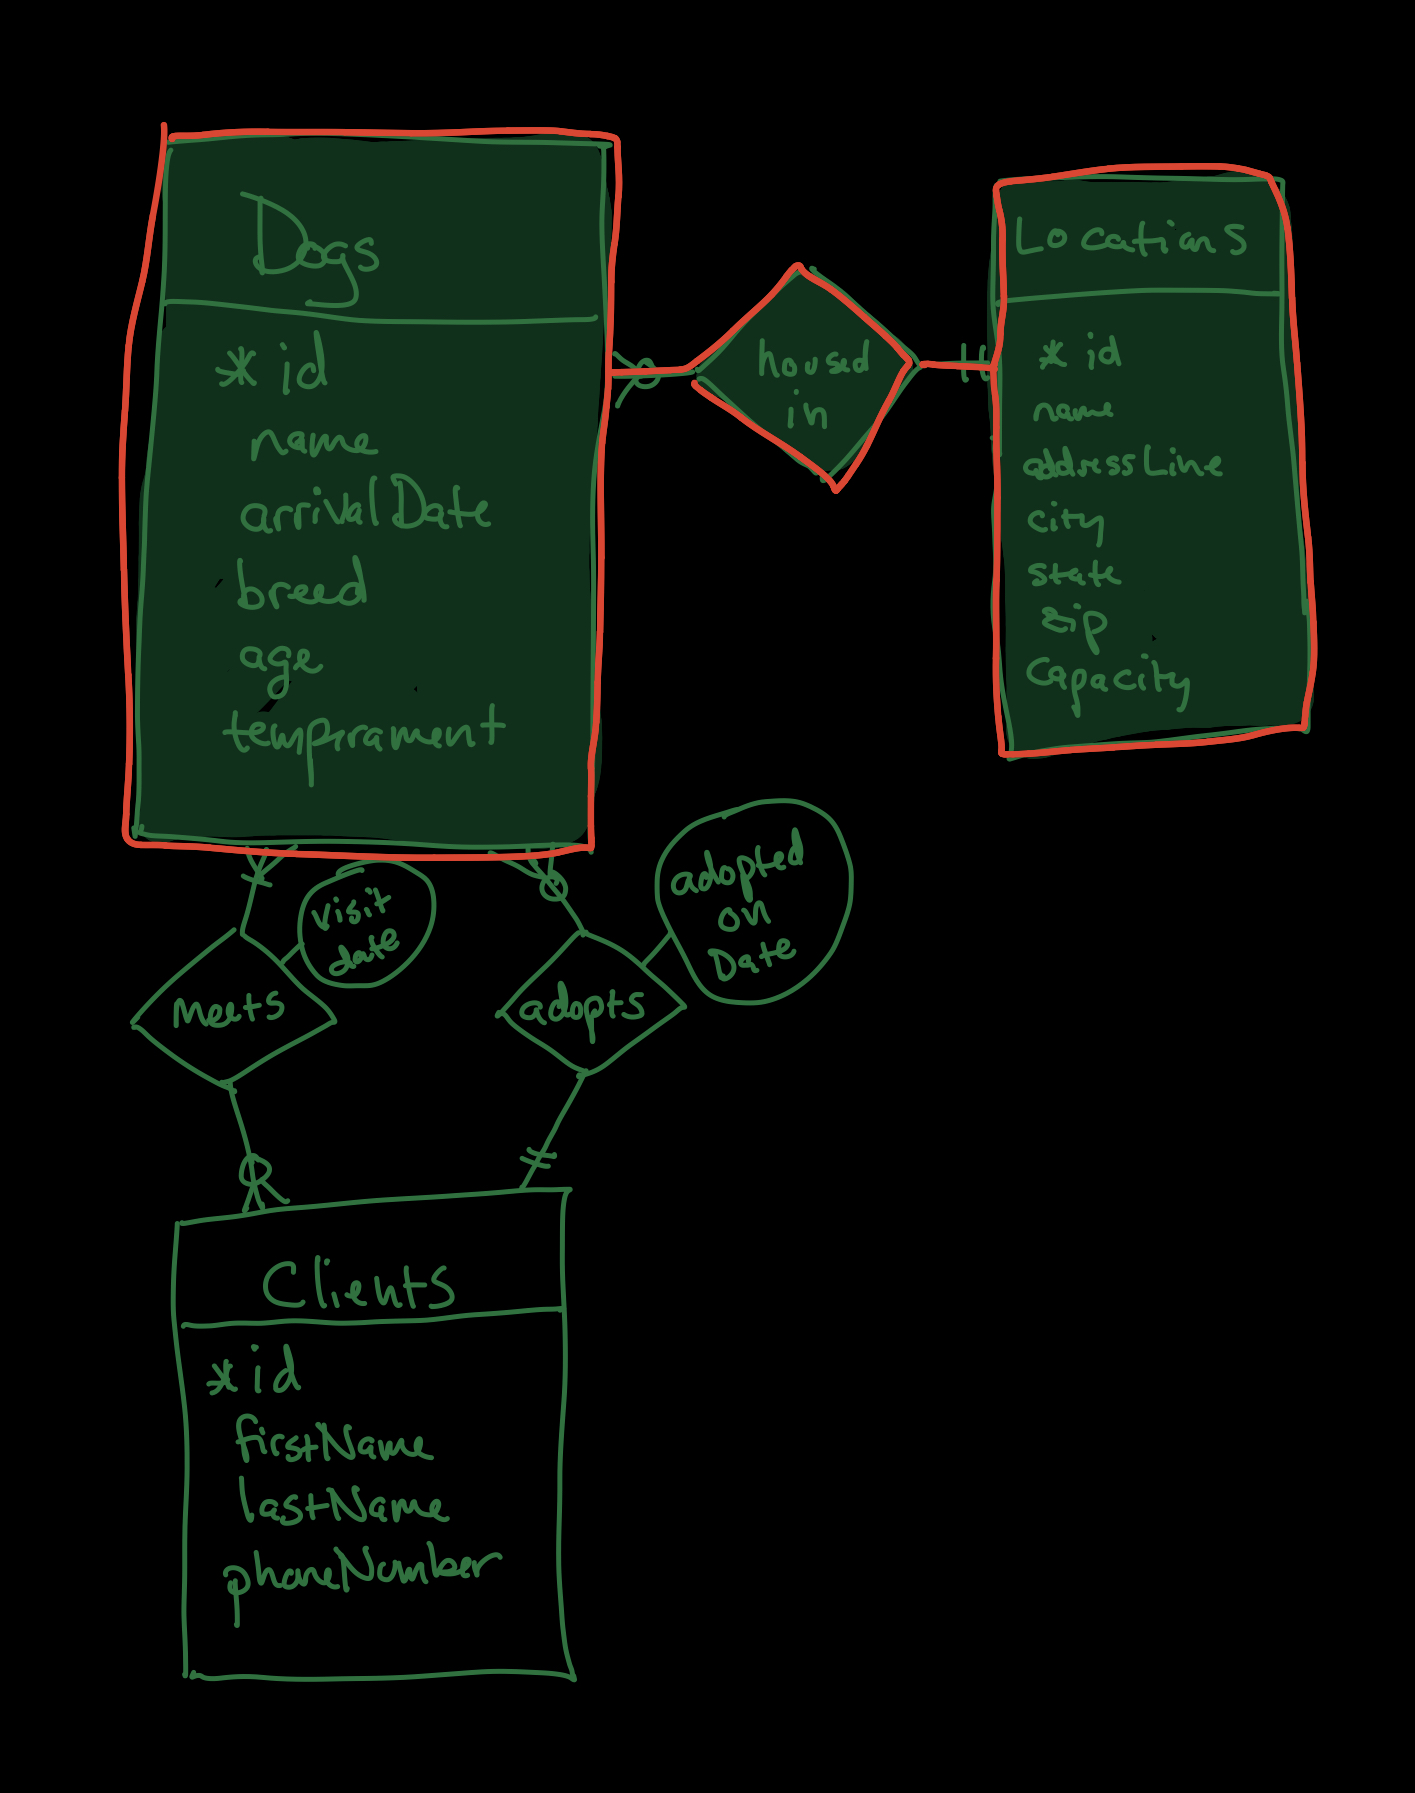 Dogs
* id
name
arrivalDate
breed
age
temperament
housed
in
Locations
* id
name
addressLine
city
state
zip
capacity
visit
date
meets
adopted
on
Date
adopts
Clients
* id
firstName
lastName
phoneNumber